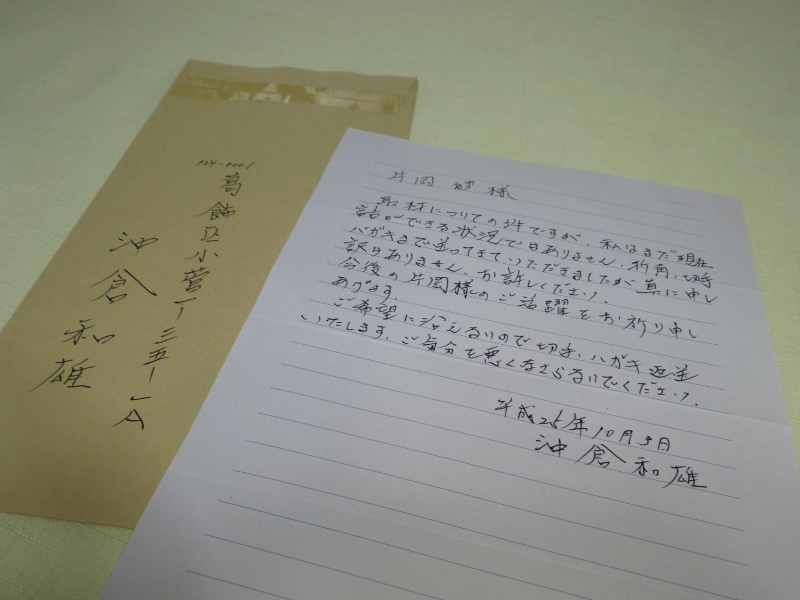 124-0001
葛飾区小菅一ー三五ー一A
沖倉和雄
片岡健様
取材についての件ですが、私はまだ現在
話ができる状況ではありません。折角、切手
ハガキまで送ってきていただきましたが真に申し
訳はありません。お許しください。
今後の片岡様のご活躍をお祈り申し
あげます。
ご希望に沿えないので切手、ハガキ返送
いたします。ご気分を悪くなさらないでください。
平成25年10月5日
沖倉和雄